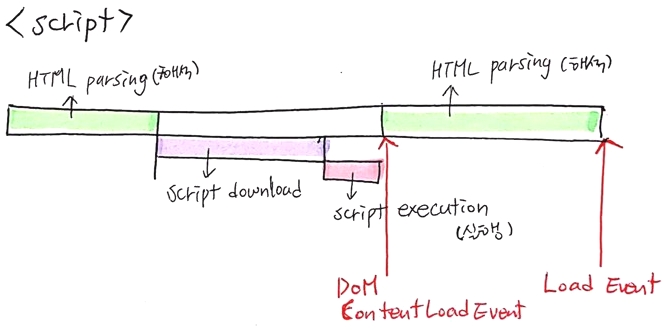 <script>
HTML parsing (해석)
HTML parsing (해석)
script download
script execution
(실행)
DOM
ContentLoadEvent
Load Event